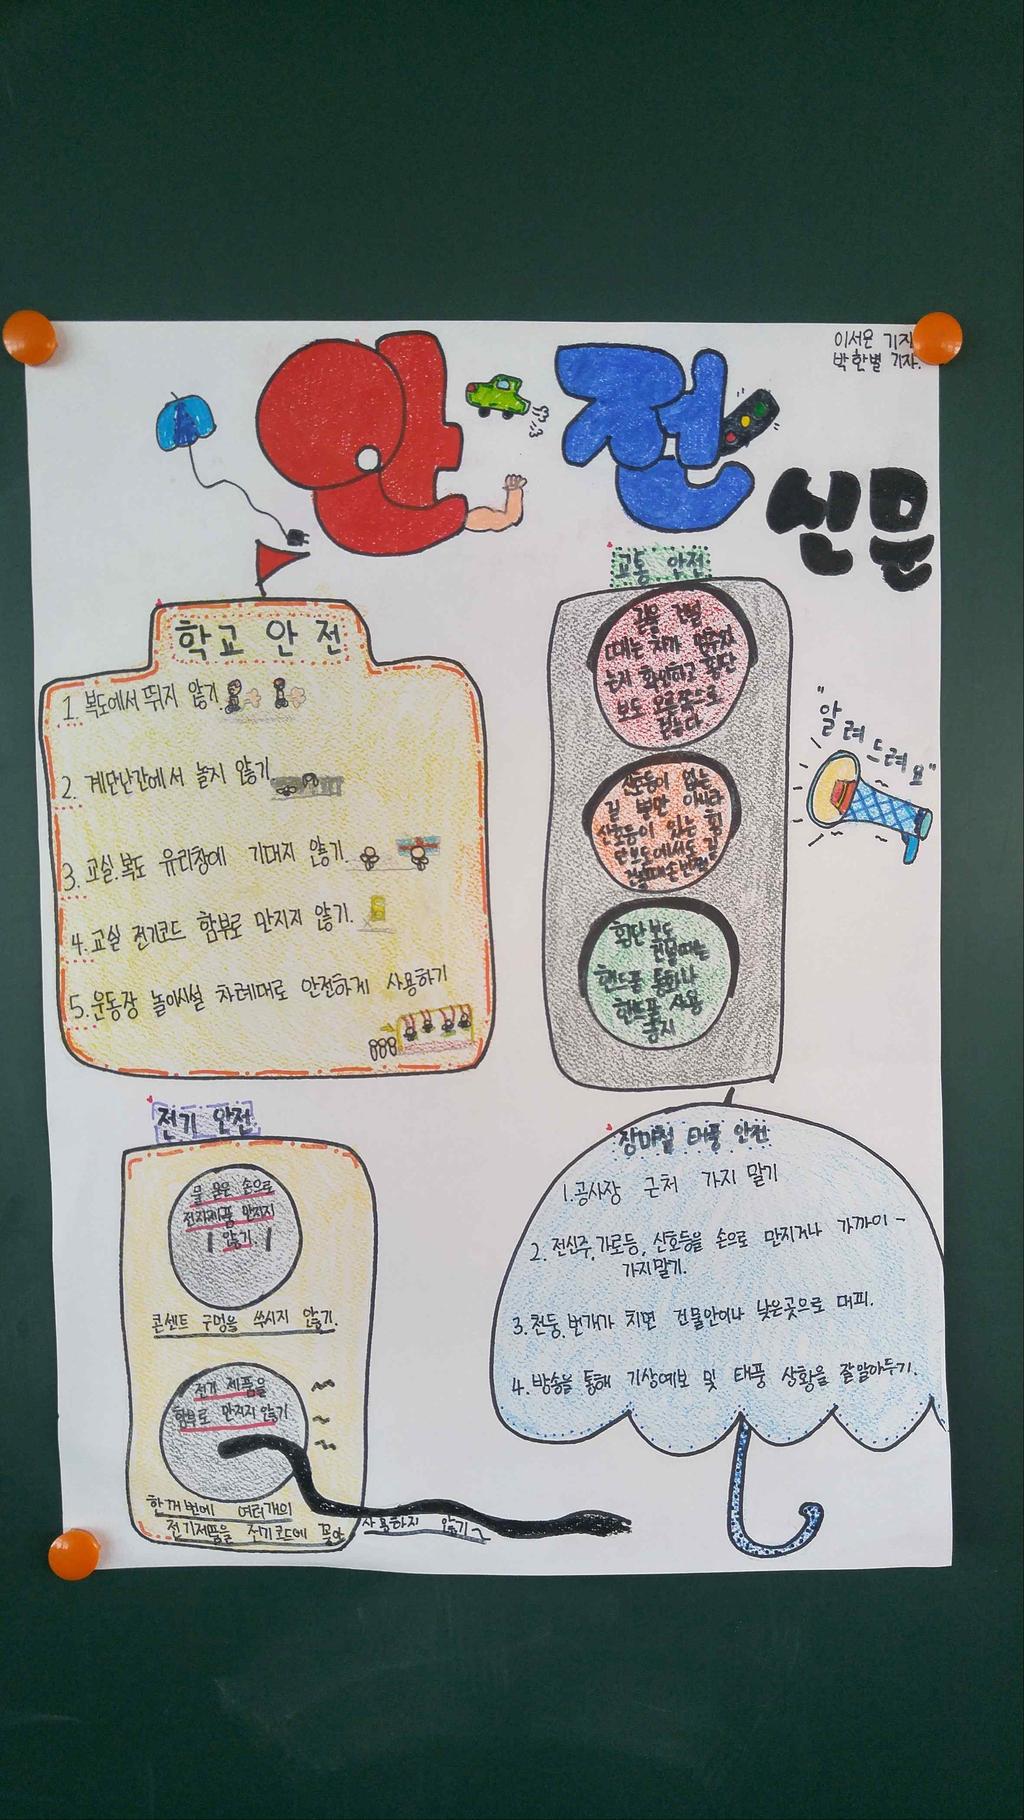 이서은 기자
박한별 기자.
안전
신문
학교 안전
1. 복도에서 뛰지 않기.
2. 계단난간에서 놀지 않기.
3. 교실.복도 유리창에 기대지 않기.
4. 교실 전기코드 함부로 만지지 않기.
5. 운동장 놀이시설 차례대로 안전하게 사용하기
교통 안전
길을 건널
때는 차가 멈추었
는지 확인하고 횡단
보도 오른쪽으로
걷는다.
신호등이 없는
길 뿐만 아니라
신호등이 있는 횡
단보도에서도 길
건널때 손번쩍
횡단보도
건널때는
핸드폰 통화나
핸드폰 사용
금지
"알려드려요"
전기 안전
물 묻은 손으로
전자제품 만지지
않기.
콘센트 구멍을 쑤시지 않기.
전기 제품을
함부로 만지지 않기
한꺼번에 여러개의
전기제품을 전기코드에 꽂아
사용하지 않기~
장마철 태풍 안전
1. 공사장 근처 가지 말기
2. 전신주,가로등, 신호등을 손으로 만지거나 가까이-
가지말기.
3. 천둥.번개가 치면 건물안이나 낮은곳으로 대피.
4. 방송을 통해 기상예보 및 태풍 상황을 잘알아두기.